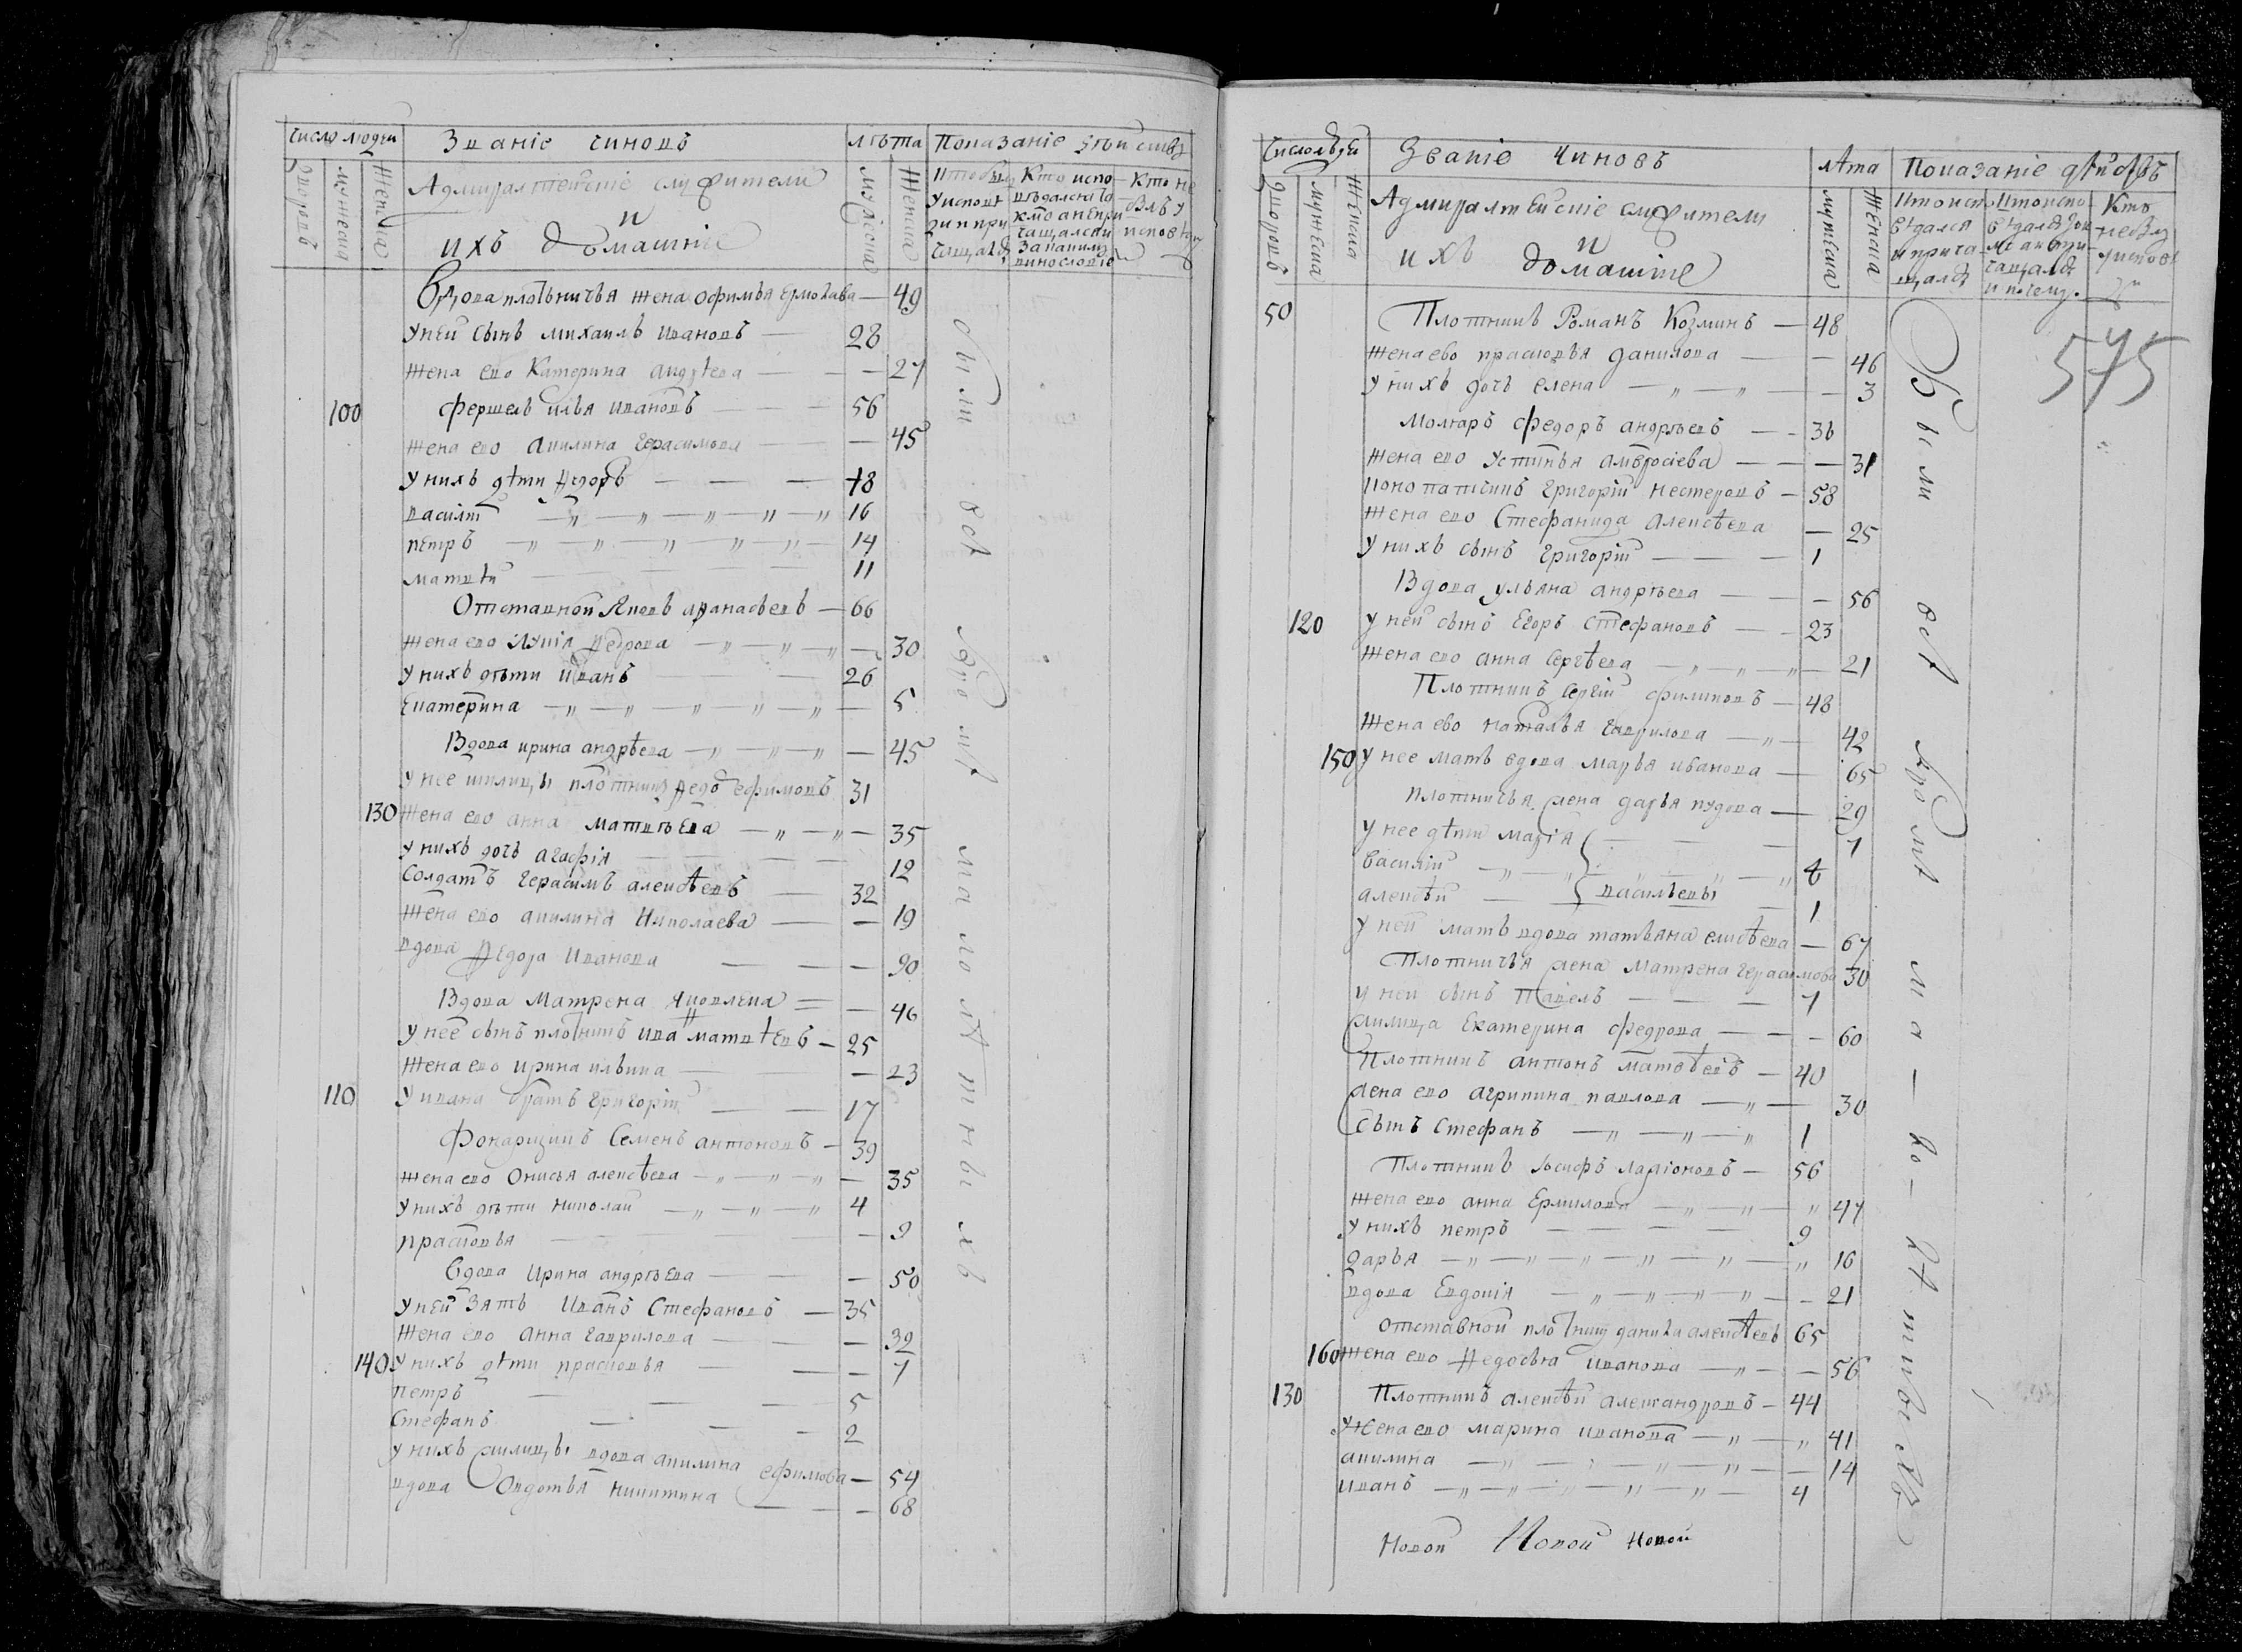 число людеи
Званіе чиновъ
лѣта
Показаніе
дворовъ
мужеска
Женска
Адмиралтеискіе служители
и
ихъ домашніе
мужеска
Женска
Кто испо-
Кто не
Вдова плотьничья жена офимья Ермолаева — 49
Унеи сынъ михаилъ ивановъ — 28
жена ево Катерина андрѣева — — — 27
100 Фершелъ илья ивановъ — — — 56
жена ево акилина Герасимова — — — 45
у нихъ дѣти Ѳедоръ — — — 18
василіи — „ — „ — „ — „ — „ 16
петръ — „ — „ — „ — „ — „ — 14
матвѣи — — — — 11
Отставной Яковъ аѳанасьевъ — 66
жена ево Лукія Ѳедрова — „ — „ — „ — 30
у нихъ дѣти иванъ — — 26
Екатерина — „ — „ — „ — „ — „ — 5
Вдова ирина андрѣева — „ — „ — „ — 45
у нее жилицы плотникъ Ѳедо ефимовъ 31
130 Жена ево анна матвѣева — „ — „ — 35
у нихъ дочь агафія — — — — 12
Солдатъ герасимъ алексѣевъ — 32
жена ево акилина Николаева — — 19
вдова Ѳедора иванова — — — 90
Вдова Матрена Яковлева — — 46
у нее сынъ плотникъ ива матвѣевъ — 25
жена ево ирина ильина — — 23
110 У ивана братъ григоріи — — 17
Фонарщикъ Семенъ антоновъ — 39
жена ево Онисья алексѣева — „ — „ — „ — 35
у нихъ дѣти николаи — „ — „ — „ 4
прасковья — — 9
Вдова Ирина андрѣева — — — 50
унеи зять Иванъ Стефановъ — 35
жена ево анна гаврилова — — — 32
140 у нихъ дѣти прасковья — — — 7
петръ — — — 5
Стефанъ — — — 2
у нихъ жилицы вдова акилина ефимова — 54
вдова Овдотья никитина — — — 68
были
всѣ
кромѣ
малолѣтныхъ
Званіе чиновъ
лѣта
Показаніе
дворовъ
мужеска
Женска
Адмиралтеискіе служители
и
ихъ домашніе
мужеска
Женска
Кто
575
50 Плотникъ Романъ Козминъ — 48
жена ево прасковья данилова — — 46
у нихъ дочь елена — „ — „ — 3
Моляръ Федоръ андрѣевъ — — 36
жена ево устинья амвросіева — — — 31
Конопатчикъ григоріи нестеровъ — 58
жена ево Стефанида алексѣева — 25
у нихъ сынъ григоріи — — — 1
Вдова ульяна андрѣева — — — 56
120 у неи сынъ Егоръ Стефановъ — — 23
жена ево анна Сергѣева — „ — „ — „ — 21
Плотникъ Сергіи филиповъ — 48
жена ево наталья гаврилова — „ — 42
150 у нее мать вдова марья иванова — 65
плотничья жена дарья пудова — 29
у нее дѣти марія — — — 7
василіи — „ — „ — „
алексѣи — василъевы — 1
у неи мать вдова татьяна елисѣева — 67
Плотничья жена матрена герасимова 30
у неи сынъ Павелъ — — — 7
жилица Екатерина федрова — — — 60
Плотникъ антонъ матвѣевъ — 40
жена ево агрипина павлова — „ — 30
сынъ Стефанъ — „ — „ — „ 1
Плотникъ иосифъ ларіоновъ — 56
жена ево анна Ермилова — „ — „ — „ 47
у нихъ петръ — — — — 9
дарья — „ — „ — „ — „ — „ — „ 16
вдова Евдокія — „ — „ — „ — „ — — 21
отставной плотникъ данила алексѣевъ 65
160 жена ево Ѳедосья иванова — „ — — 56
130 Плотникъ алексѣи александровъ — 44
жена ево марина иванова — „ — „ 41
акилина — „ — „ — „ — „ — — 14
иванъ — „ — „ — „ — „ — „ — 4
Новои Новои Новои
Были
всѣ
кромѣ